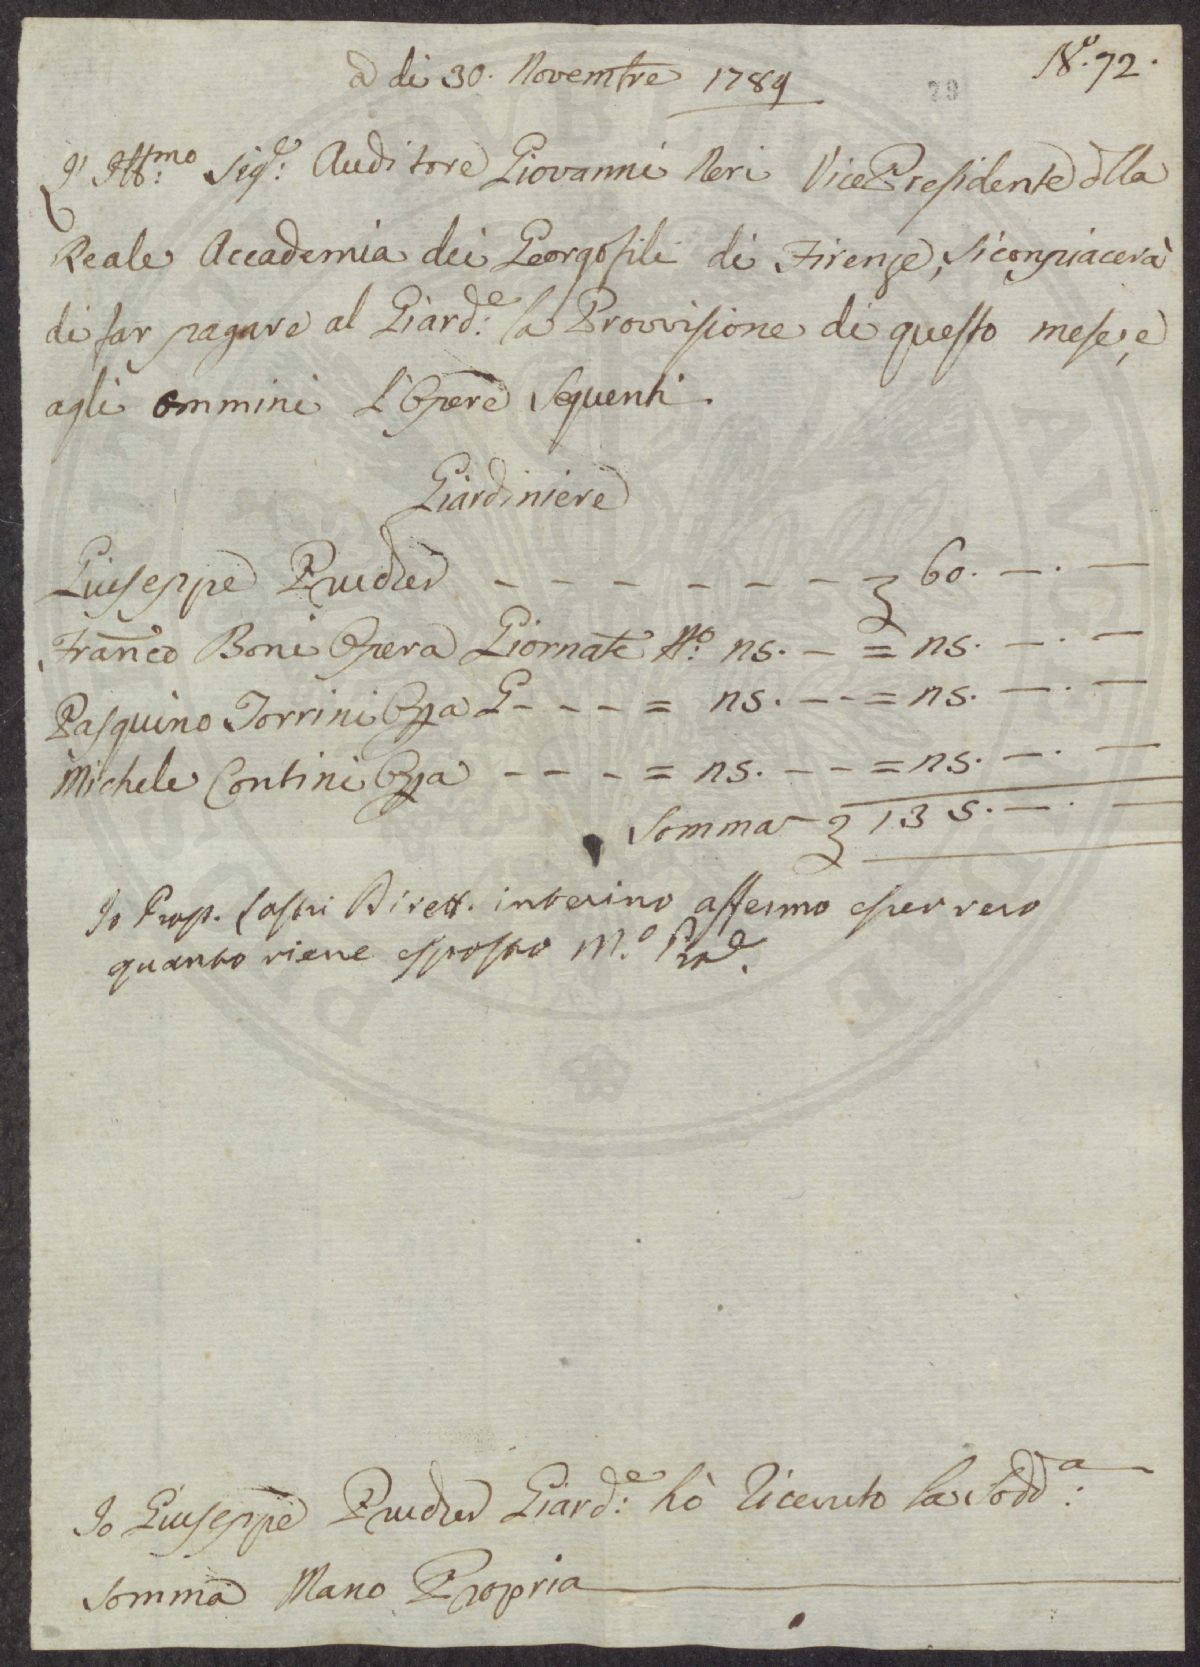 N.o 72.
A di 30. Novembre 1789
73
L' Ill.mo Sig.e Auditore Giovanni Neri Vice Presidente della
Reale Accademia dei Georgofili di Firenze, Si conpiacerà
di far pagare al Giard.e la Provvisione di questo mese, e
agli ommini L'Opere Seguenti.
Giardiniere
Giuseppe Prucker - - - - - - - 60. —. —
Franco Boni Opera Giornate No: 25. — = 25. —. —
Pasquino Torrini Oppa G - - - = 25. - - = 25. —. —
Michele Contini Oppa - - - - = 25. - - = 25. —. —
Somma 135. —. —
Io Prop. Lastri Dirett. interino affermo esser vero
quanto viene esposto M.o Pra.
Io Giuseppe Prucker Giard.e hò Ricevuto la Sodd.a
Somma Mano Propria